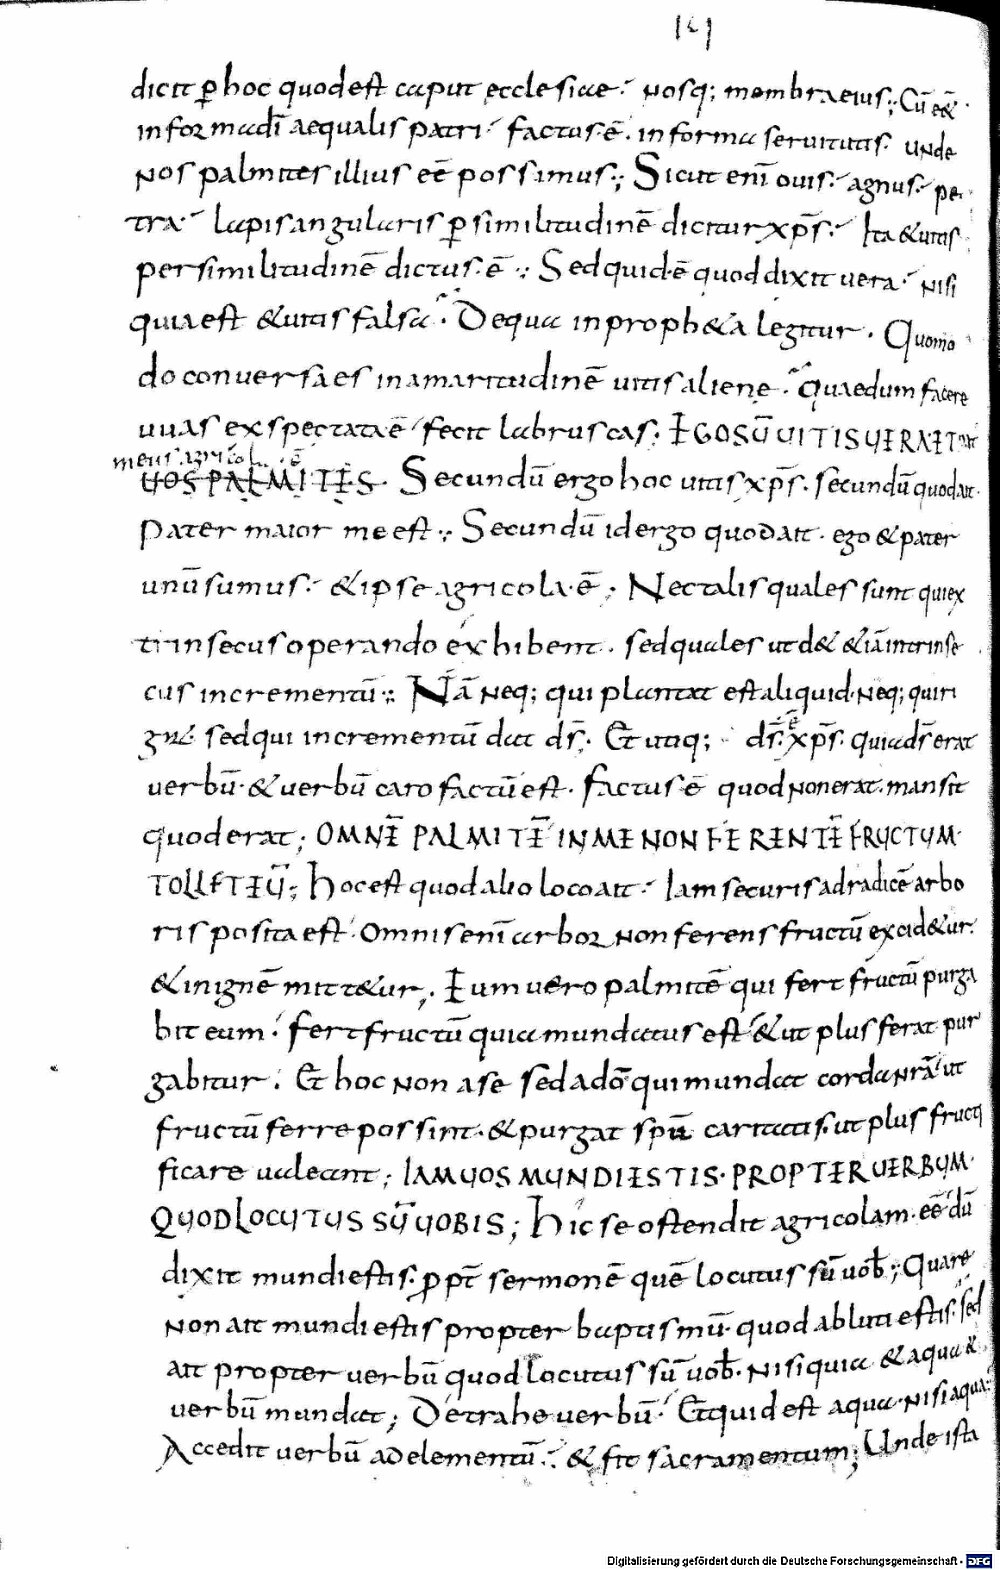 141
dicit p̱ hoc quod est caput ecclesiae· nosq; membra eius; Cū eēt
in forma dī aequalis patri· factus·ē· in forma seruitutis· unde
nos palmites illius eē possimus; Sicut enī ouis· agnus· pe
tra· lapis angularis p̱ similitudinē dicitur xp̄s· Ita & uitis
per similitudinē dictus·ē·; Sed quid·ē quod dixit uera· nisi
quia est & uitis falsa· De qua in proph&a legitur· Quomo
do conuersa es in amaritudinē uitis aliene· Quae dum facere
uuas expectata ē fecit labruscas· EGO SŪ UITIS UERA ET pat
meus agricola ē
UOS PALMITES· Secundū ergo hoc uitis xp̄s· secundū quod ait·
Pater maior me est·; Secundū id ergo quod ait· ego & pater
unū sumus· & ipse agricola·ē·; Nec talis quales sunt qui ex
trinsecus operando exhibent· sed quales ut d& &iā intrinse
cus incrementū·; Nā neq; qui plantat est aliquid· neq; qui ri
gat· sed qui incrementū dat ds̄· Et utiq; ds̄ ē xp̄s· quia ds̄ erat
uerbū· & uerbū caro factū est· Factus ē quod non erat· mansit
quod erat; OMNĒ PALMITĒ IN ME NON FERENTĒ FRUCTUM·
TOLLET EŪ; Hoc est quod alio loco ait· Iam securis ad radicē arbo
ris posita est· Omnis enī arbor non ferens fructū excid&ur·
& in ignē mitt&ur; Eum uero palmitē qui fert fructū purga
bit eum· fert fructū quia mundatus est & ut plus ferat pur
gabitur· Et hoc non a se sed a dō qui mundat corda nrā ut
fructū ferre possint· & purgat spū caritatis· ut plus fructi
ficare ualeant; IAM UOS MUNDI ESTIS· PROPTER UERBUM·
QUOD LOCUTUS SŪ UOBIS; Hic se ostendit agricolam·eē dū
dixit mundi estis· p̱pt̄ sermonē quē locutus sū uob̄·; Quare
non ait mundi estis propter baptismū· quod abluti estis· sed
ait propter uerbū quod locutus sū uob̄· Nisi quia & aqua &
uerbū mundat; Detrahe uerbū· Et quid est aqua· nisi aqua·
Accedit uerbū ad elementū·; & fit sacramentum; Unde ista
Digitalisierung gefördert durch die Deutsche Forschungsgemeinschaft - DFG